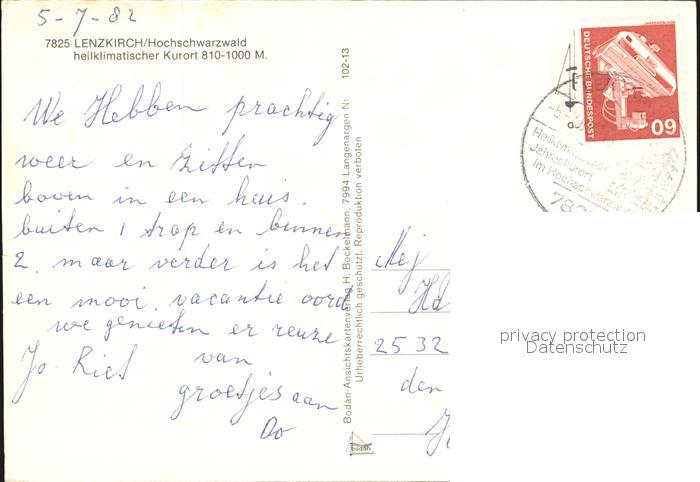 5-7-82
7825 LENZKIRCH/Hochschwarzwald
heilklimatischer Kurort 810-1000 M.
We Hebben prachtig
weer en zitten
boven in een huis.
buiten 1 trap en binnen
2. maar verder is het
een mooi vacantie oord
we genieten er reuze
Jo. Riet van
groetjes aan
Do
Bodan-Ansichtskartenverlag H. Bockelmann, 7994 Langenargen Nr. 102-13
Urheberrechtlich geschützt, Reproduktion verboten
bodan
DEUTSCHE BUNDESPOST
60
Heilklimatischer
Jahreskurort
im Hochschwarzwald
782
Mej
2532
den
privacy protection
Datenschutz